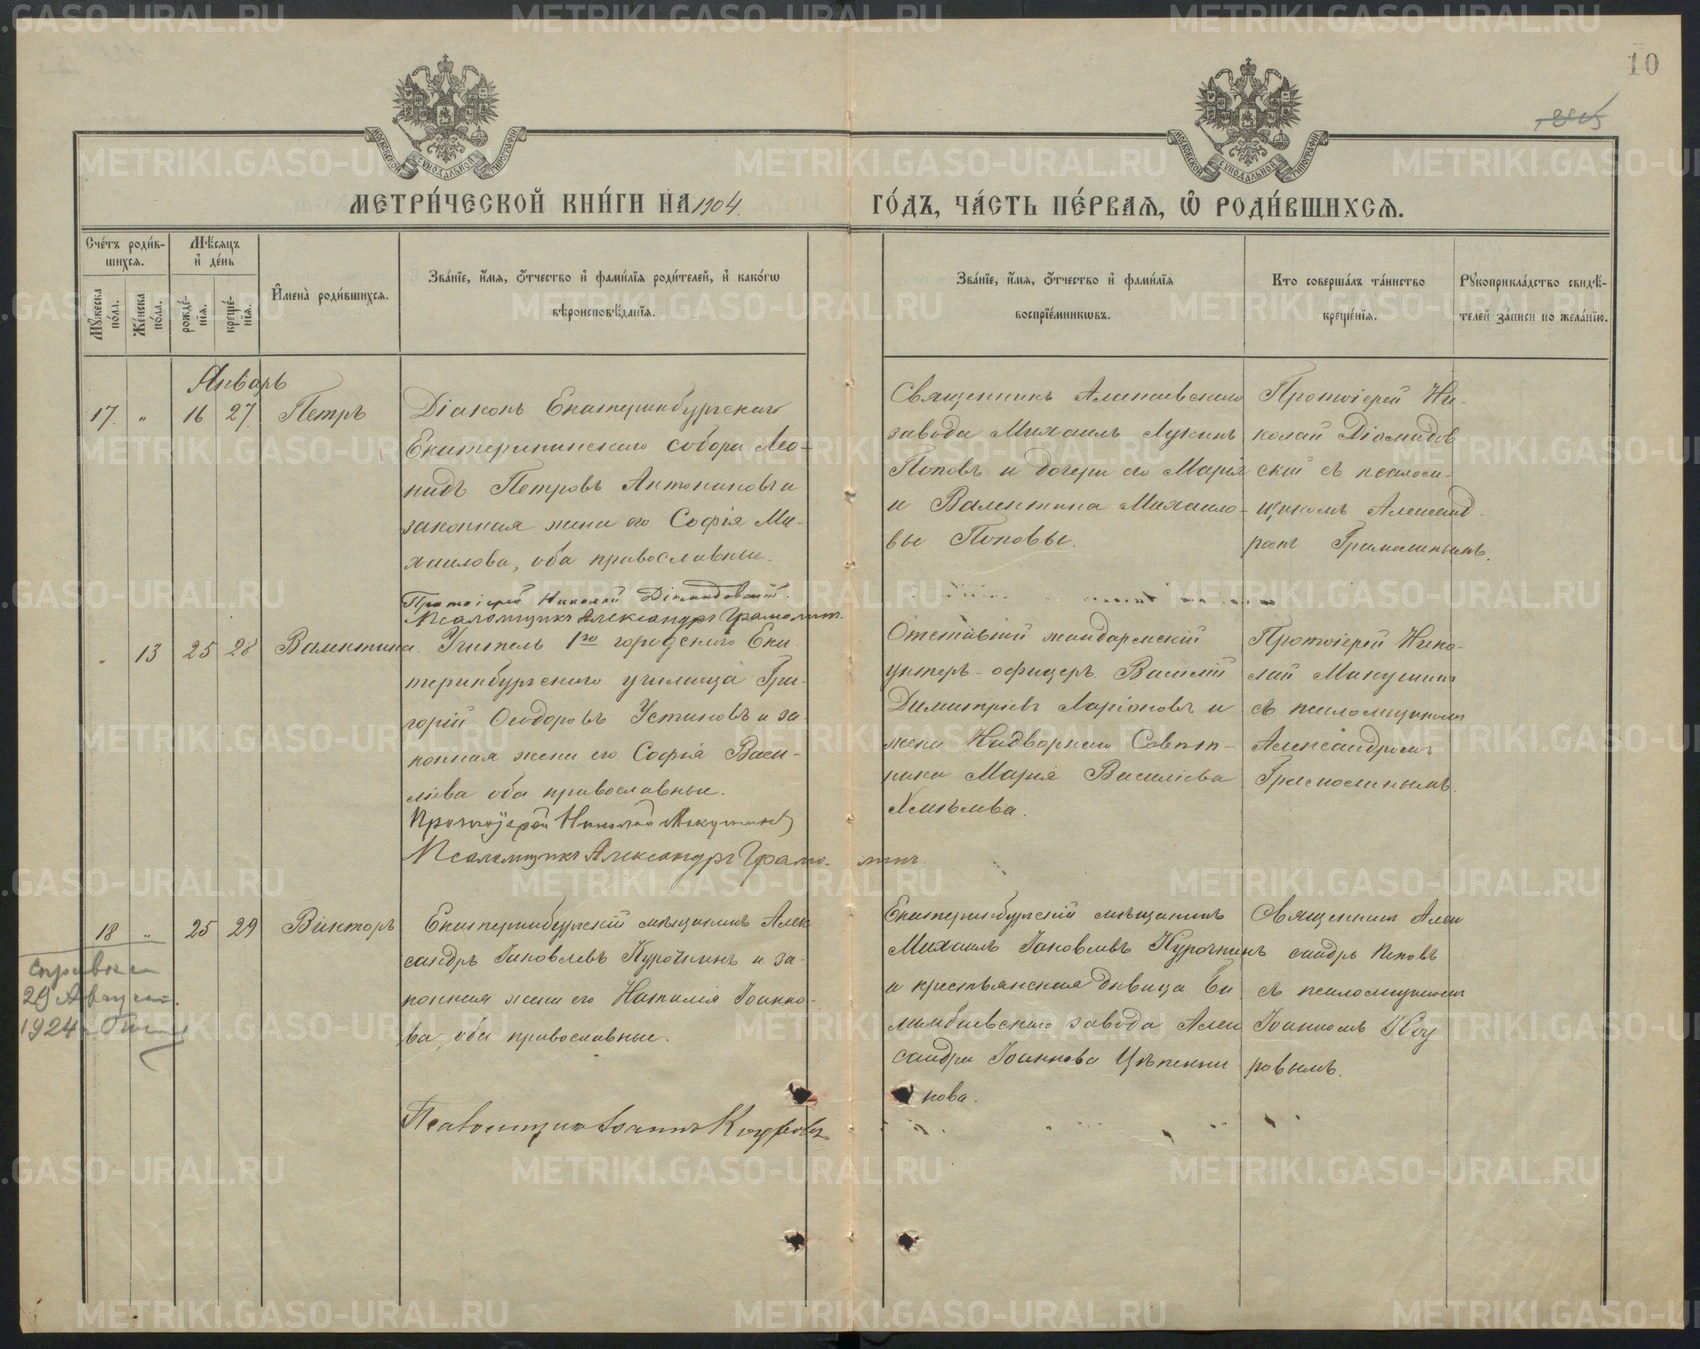 10
МЕТРИ́ЧЕСКОЙ КНИ́ГИ НА 1904.
ГО́ДЪ, ЧА́СТЬ ПЕ́РВАЯ, Ѽ РОДИ́ВШИХСЯ.
Сче́тъ роди́в-
шихся.
Мѣ́сяцъ
и҆ де́нь
Му́жеска по́ла.
Же́нска по́ла.
рожде́-
нїя.
креще́-
нїя.
И҆мена̀ роди́вшихся.
Зва́нїе, и҆́мя, ѻ҆́тчество и҆ фами́лїя роди́телей, и҆ како́гѡ
вѣроисповѣ́данїя.
Зва́нїе, и҆́мя, ѻ҆́тчество и҆ фами́лїя
воспрїе́мникѡвъ.
Кто соверша́лъ та́инство
креще́нїя.
Рꙋкоприкла́дство свидѣ́-
телей за́писи по жела́нїю.
Январь
17. " 16 27 Петръ
Діаконъ Екатеринбургскаго
Екатерининскаго собора Лео-
нидъ Петровъ Антониновъ и
законная жена его Софія Ми-
хаилова, оба православные.
Протоіерей Николай Діомидовскій.
Псаломщикъ Александръ Грамолин.
Священникъ Алапаевскаго
завода Михаилъ Лукинъ
Поповъ и дочери его Марія
и Валентина Михаило-
вы Поповы.
Протоіерей Ни-
колай Діомидов
скій съ псаломщ-
щикомъ Александ
ромъ Грамолинымъ.
" 13 25 28 Валентина.
Учитель 1го городского Ека
теринбургскаго училища Гри-
горій Ѳеодоровъ Устиновъ и за-
конная жена его Софія Васи-
льева оба православные.
Протоіерей Николай Микушинъ
Псаломщикъ Александръ Грамо- линъ.
Отставной жандармскій
унтеръ-офицеръ Василій
Димитріевъ Ларіоновъ и
жена Надворнаго Совѣт-
ника Марія Василіева
Протоіерей Нико-
лай Микушинъ
съ псаломщикомъ
Александромъ
Грамолинымъ.
18 " 25 29 Викторъ
Екатеринбургскій мѣщанинъ Алек
сандръ Іаковлевъ Курочкинъ и за-
конная жена его Наталія Іоанно-
ва, оба православные.
Псаломщикъ Іоаннъ
Екатеринбургскій мѣщанинъ
Михаилъ Іаковлевъ Курочкинъ
и крестьянская дѣвица Би
лимбаевскаго завода Алек
сандра Іоаннова Цѣпенни
кова.
Священникъ Алек
сандръ Поповъ
съ псаломщикомъ
Іоанномъ
ровымъ.
справка
29 Август.
1924 г.
METRIKI.GASO-URAL.RU